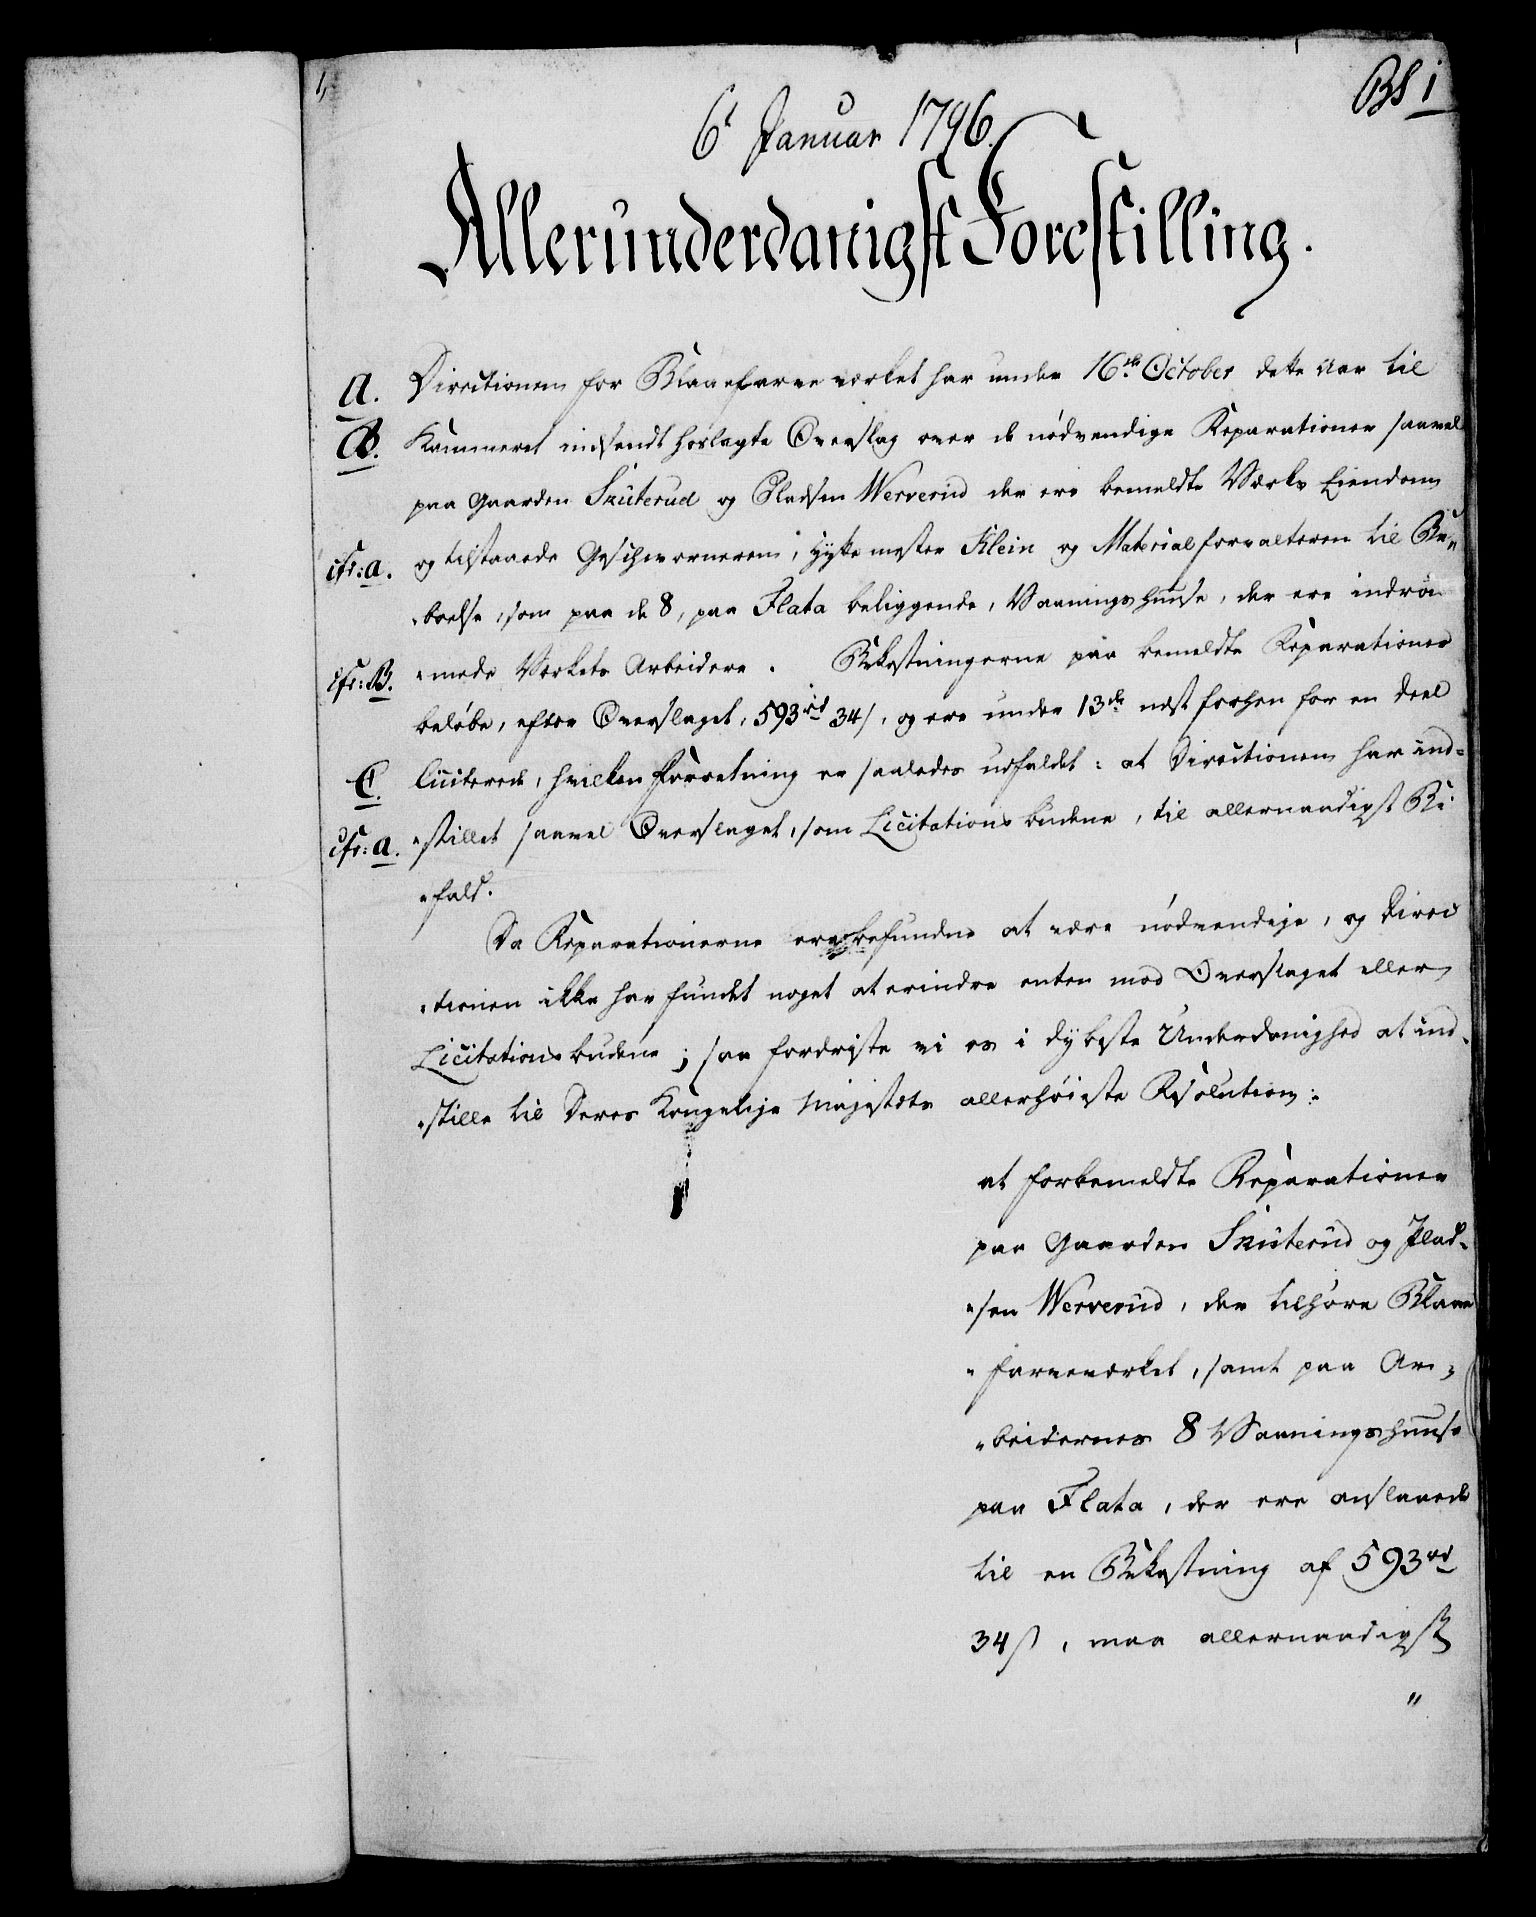 1,
BS 1
6t Januar 1796.
Allerunderdanigst Forestilling.
A. Directionen for Blaaefarveverket har under 16de October dette Aar til
B. Kammeret indsendt hoslagte Overslag over de nödvendige Reparationer saavel
paa Gaarden Skuterud og Pladsen Werverud der ere bemeldte Værks Eiendom
cfr: a. og tilstaaede Geschwornerem, Hyttemester Klein og Materialforvalteren til Be„
„boelse, som paa de 8, paa Flata beliggende, Vaaningshuuse, der ere indröm
cfr: B. „mede Verkets Arbeidere. Bekostningerne paa bemeldte Reparationer
belöbe, efter Overslaget, 593 rd 34 s, og ere under 13de næst forhen for en Deel
C. liciterede, hvilken Forretning er saaledes udfaldet: at Directionen har ind=
cfr: a. „stillet saavel Overslaget, som Licitationsbudene, til allernaadigst Bi
„fald.
Da Reparationerne ere befundne at være nödvendige, og Direc
„tionen ikke har fundet noget at erindre enten mod Overslaget eller
Licitationsbudene; saa fordriste vi os i dybeste Underdanighed at ind„
„stille til Deres Kongelige Majestæts allerhöieste Resolution:
at forbemeldte Reparationer
paa Gaarden Skuterud og Plad„
„sen Werverud, der tilhöre Blaae
„farveverket, samt paa Ar„
„beidernes 8 Vaaningshuuse
paa Flata, der ere anslaaede
til en Bekostning af 593 rd
34 s, maa allernaadigst
„